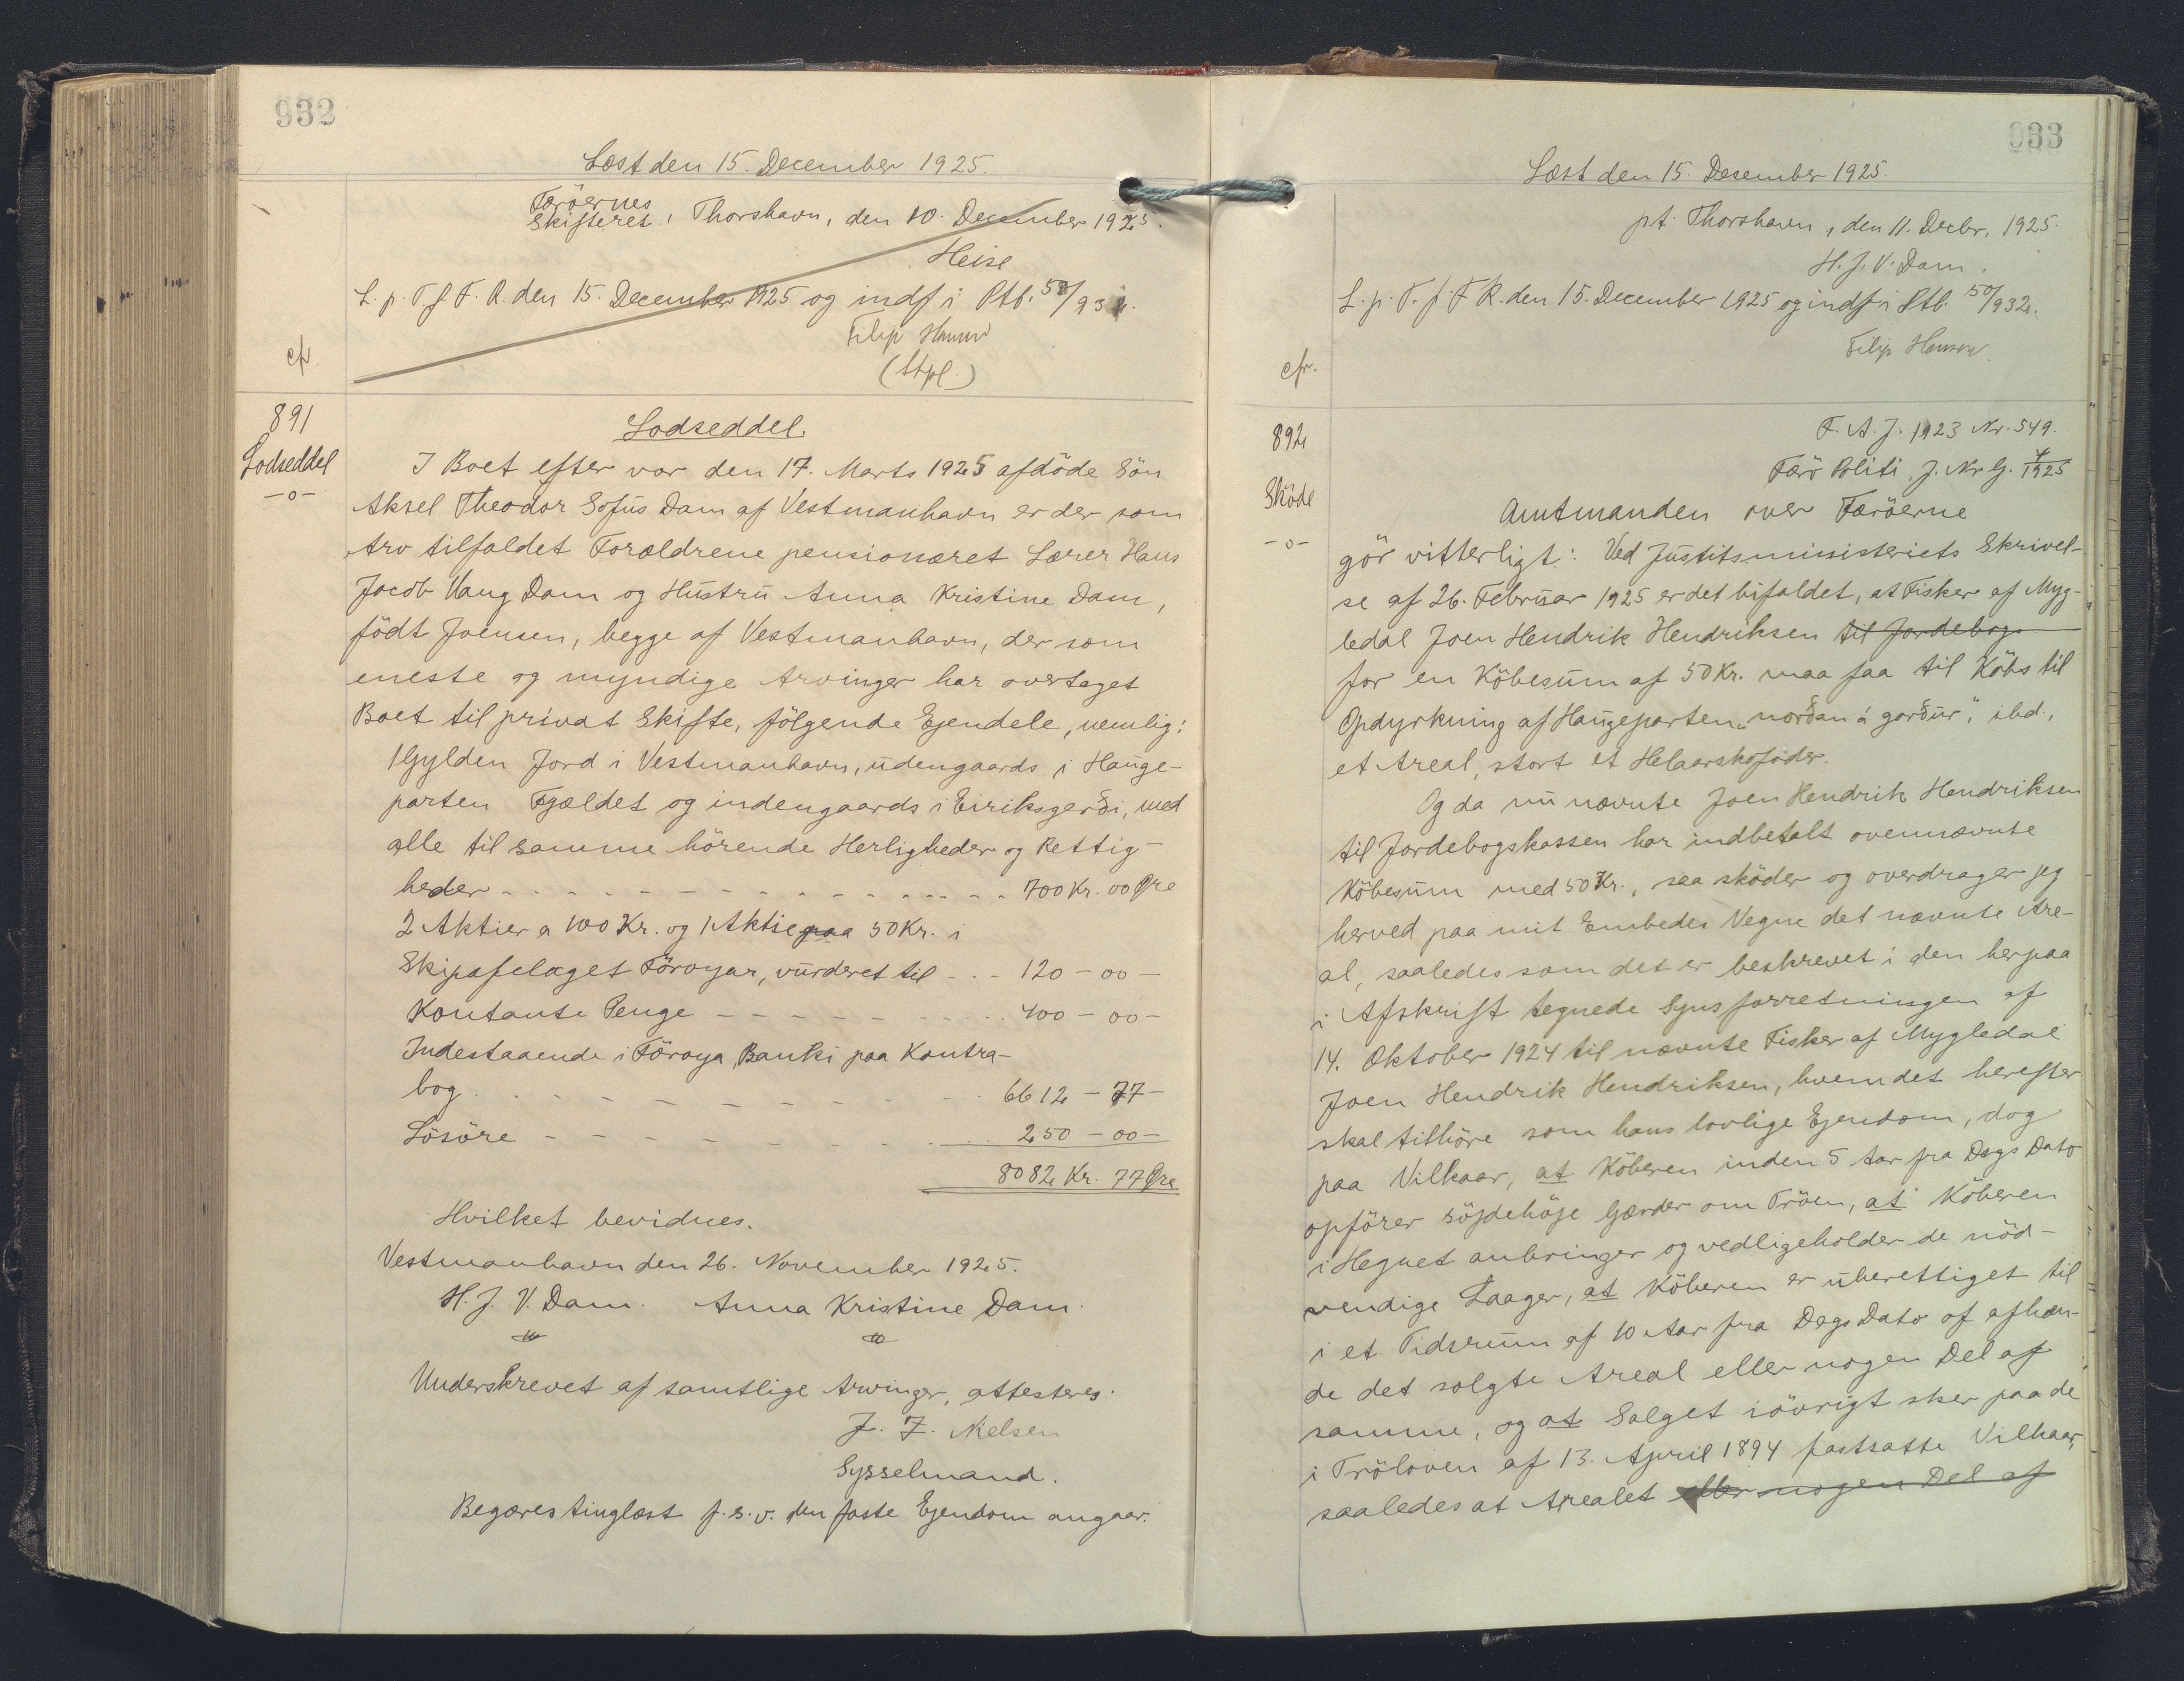 932
Læst den 15. December 1925.
Færöernes
Skifteret, Thorshavn, den 10. December 1925.
Heise
L. p. T. f. F. R. den 15. December 1925 og indf i Ptb. 50/932.
Filip Hansen
(Stpl.)
cfr.
891
Lodseddel
-o-
Lodseddel.
I Boet efter vor den 17. Marts 1925 afdöde Sön
Aksel Theodor Sofus Dam af Vestmanhavn er der som
Arv tilfaldet Forældrene pensioneret Lærer Hans
Jacob Vang Dam og Hustru Anna Kristine Dam,
födt Joensen, begge af Vestmanhavn, der som
eneste og myndige Arvinger har overtaget
Boet til privat Skifte, följende Ejendele, nemlig:
1 Gylden Jord i Vestmanhavn, udengaards i Hauge-
parten Fjældet og indengaards i Eiriksgerði, med
alle til samme hörende Herligheder og Rettig-
heder - - - 700 Kr. 00 Øre
2 Aktier a 100 Kr. og 1 Aktie paa 50 Kr. i
Skipafelaget Föroyar, vurderet til - - - 120 - 00 -
Kontante Penge - - - 400 - 00 -
Indestaaende i Föroya Banki paa Kontra-
bog - - - 6612 - 77 -
Lösöre - - - 250 - 00 -
8082 Kr. 77 Øre
Hvilket bevidnes.
Vestmanhavn den 26. November 1925.
H. J. V. Dam. Anna Kristine Dam.
Underskrevet af samtlige Arvinger, attesteres.
J. F. Nielsen
Sysselmand.
Begæres tinglæst f. s. v. den faste Ejendom angaar.
933
Læst den 15. December 1925.
pt. Thorshavn, den 11. Decbr. 1925.
H. J. V. Dam.
L. p. T. f. F. R. den 15. December 1925 og indf i Ptb. 50/932.
Filip Hansen
cfr.
892
Sköde
-o-
F. A. J. 1923 Nr. 549.
Færö Politi J. Nr G. 4/1925
Amtmanden over Færöerne
gör vitterligt: Ved Justitsministeriets Skrivel-
se af 26. Februar 1925 er det bifaldet, at Fisker af Myg-
ledal Joen Hendrik Hendriksen til Jordebogs
for en Köbesum af 50 Kr. maa faa til Köbs til
Opdyrkning af Haugeparten "norðan á gorður", ibd.,
et Areal, stort et Helaarskofoder.
Og da nu nævnte Joen Hendrik Hendriksen
til Jordebogskassen har indbetalt ovennævnte
Köbesum med 50 Kr., saa sköder og overdrager jeg
herved paa mit Embedes Vegne det nævnte Are-
al, saaledes som det er beskrevet i den herpaa
i Afskrift tegnede Synsforretningen af
14. Oktober 1924 til nævnte Fisker af Mygledal
Joen Hendrik Hendriksen, hvem det herefter
skal tilhöre som hans lovlige Ejendom, dog
paa Vilkaar, at Köberen inden 5 Aar fra Dags Dato
opförer söjdehöje Gærder om Tröen, at Köberen
i Hegnet anbringer og vedligeholder de nöd-
vendige Laager, at Köberen er uberettiget til
i et Tidsrum af 10 Aar fra Dags Dato af afhæn-
de det solgte Areal eller nogen Del af
samme, og at Salget iövrigt sker paa de
i Tröloven af 13. April 1894 fastsatte Vilkaar,
saaledes at Arealet eller nogen Del af